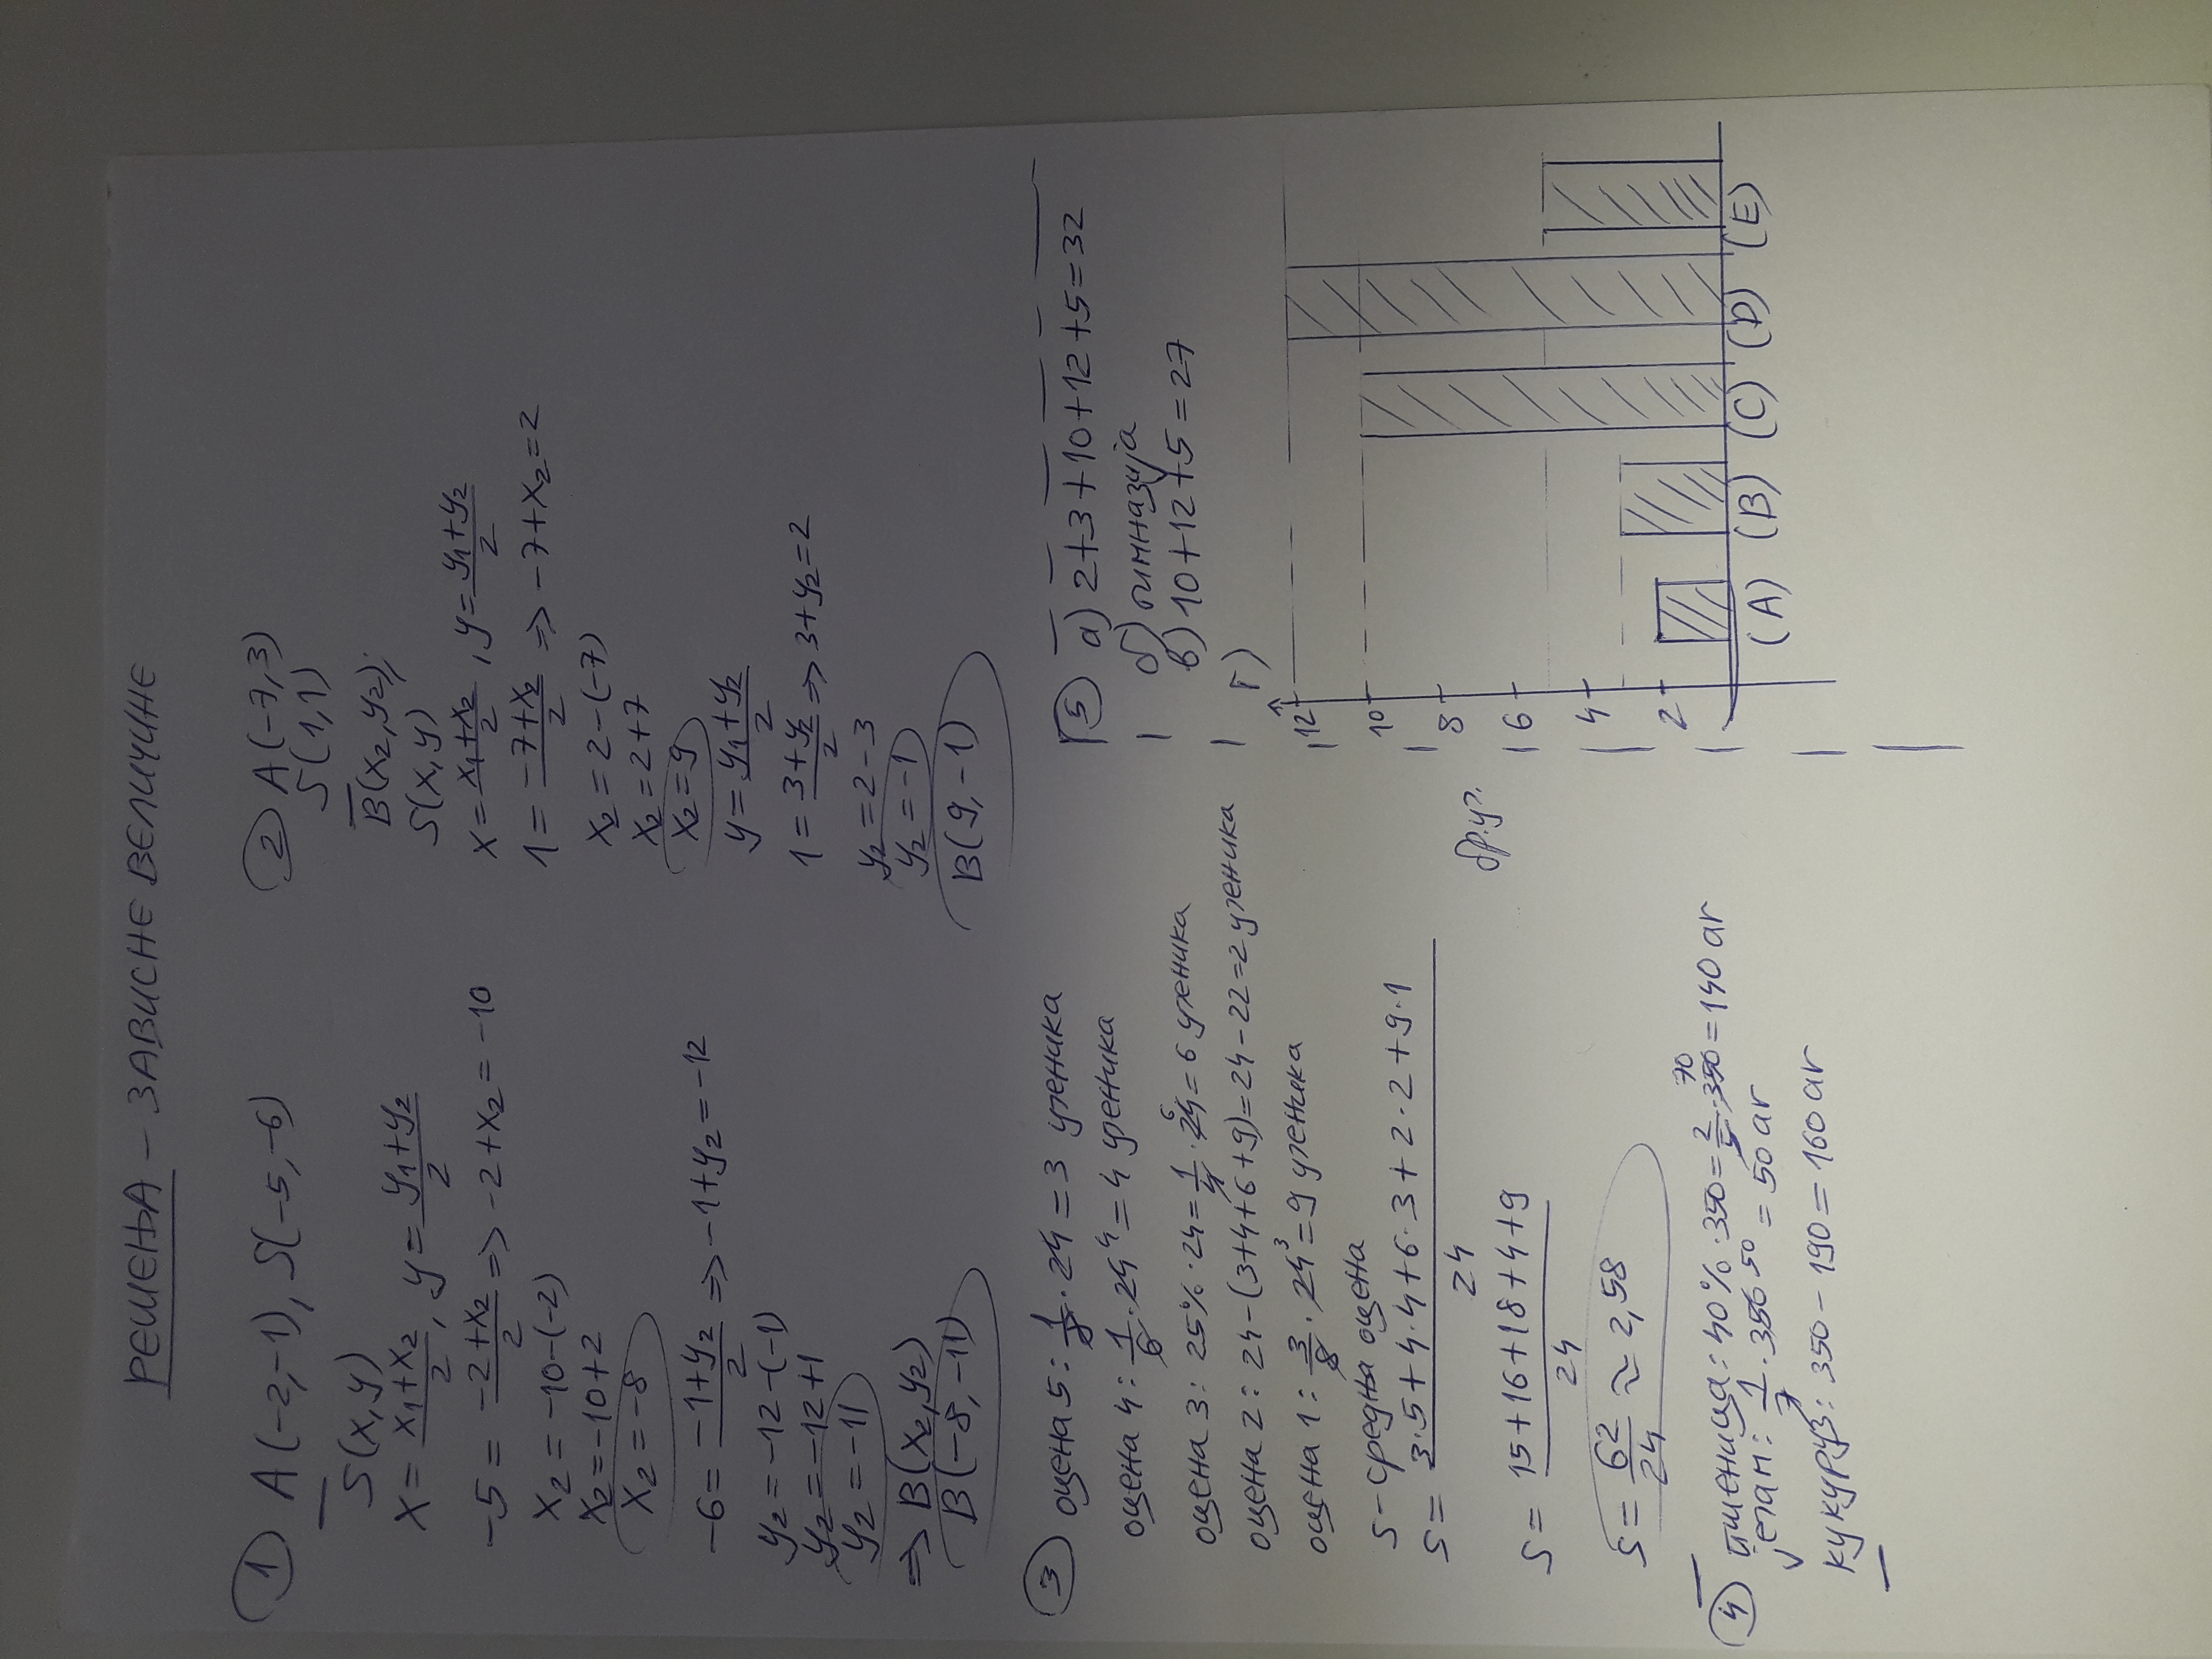 РЕШЕЊА – ЗАВИСНЕ ВЕЛИЧИНЕ
① A(-2,-1), S(-5,-6)
S(x,y)
x = (x₁+x₂)/2, y = (y₁+y₂)/2
-5 = (-2+x₂)/2 => -2+x₂ = -10
x₂ = -10-(-2)
x₂ = -10+2
x₂ = -8
-6 = (-1+y₂)/2 => -1+y₂ = -12
y₂ = -12-(-1)
y₂ = -12+1
y₂ = -11
=> B(x₂,y₂)
B(-8,-11)
② A(-7,3)
S(1,1)
B(x₂,y₂);
S(x,y)
x = (x₁+x₂)/2, y = (y₁+y₂)/2
1 = (-7+x₂)/2 => -7+x₂ = 2
x₂ = 2-(-7)
x₂ = 2+7
x₂ = 9
y = (y₁+y₂)/2
1 = (3+y₂)/2 => 3+y₂ = 2
y₂ = 2-3
y₂ = -1
B(9,-1)
③ оцена 5: 1/8 · 24 = 3 ученика
оцена 4: 1/6 · 24 4 = 4 ученика
оцена 3: 25% · 24 = 1/4 · 24 6 = 6 ученика
оцена 2: 24-(3+4+6+9) = 24-22 = 2 ученика
оцена 1: 3/8 · 24 3 = 9 ученика
S - средња оцена
S = (3·5+4·4+6·3+2·2+9·1)/24
S = (15+16+18+4+9)/24
S = 62/24 ≈ 2,58
④ пшеница: 40% · 350 = 2/5 · 350 70 = 140 ar
јечам: 1/7 · 350 50 = 50 ar
кукуруз: 350-190 = 160 ar
⑤ а) 2+3+10+12+5 = 32
б) гимназија
в) 10+12+5 = 27
г)
бр.уч.
12
10
8
6
4
2
(A) (B) (C) (D) (E)